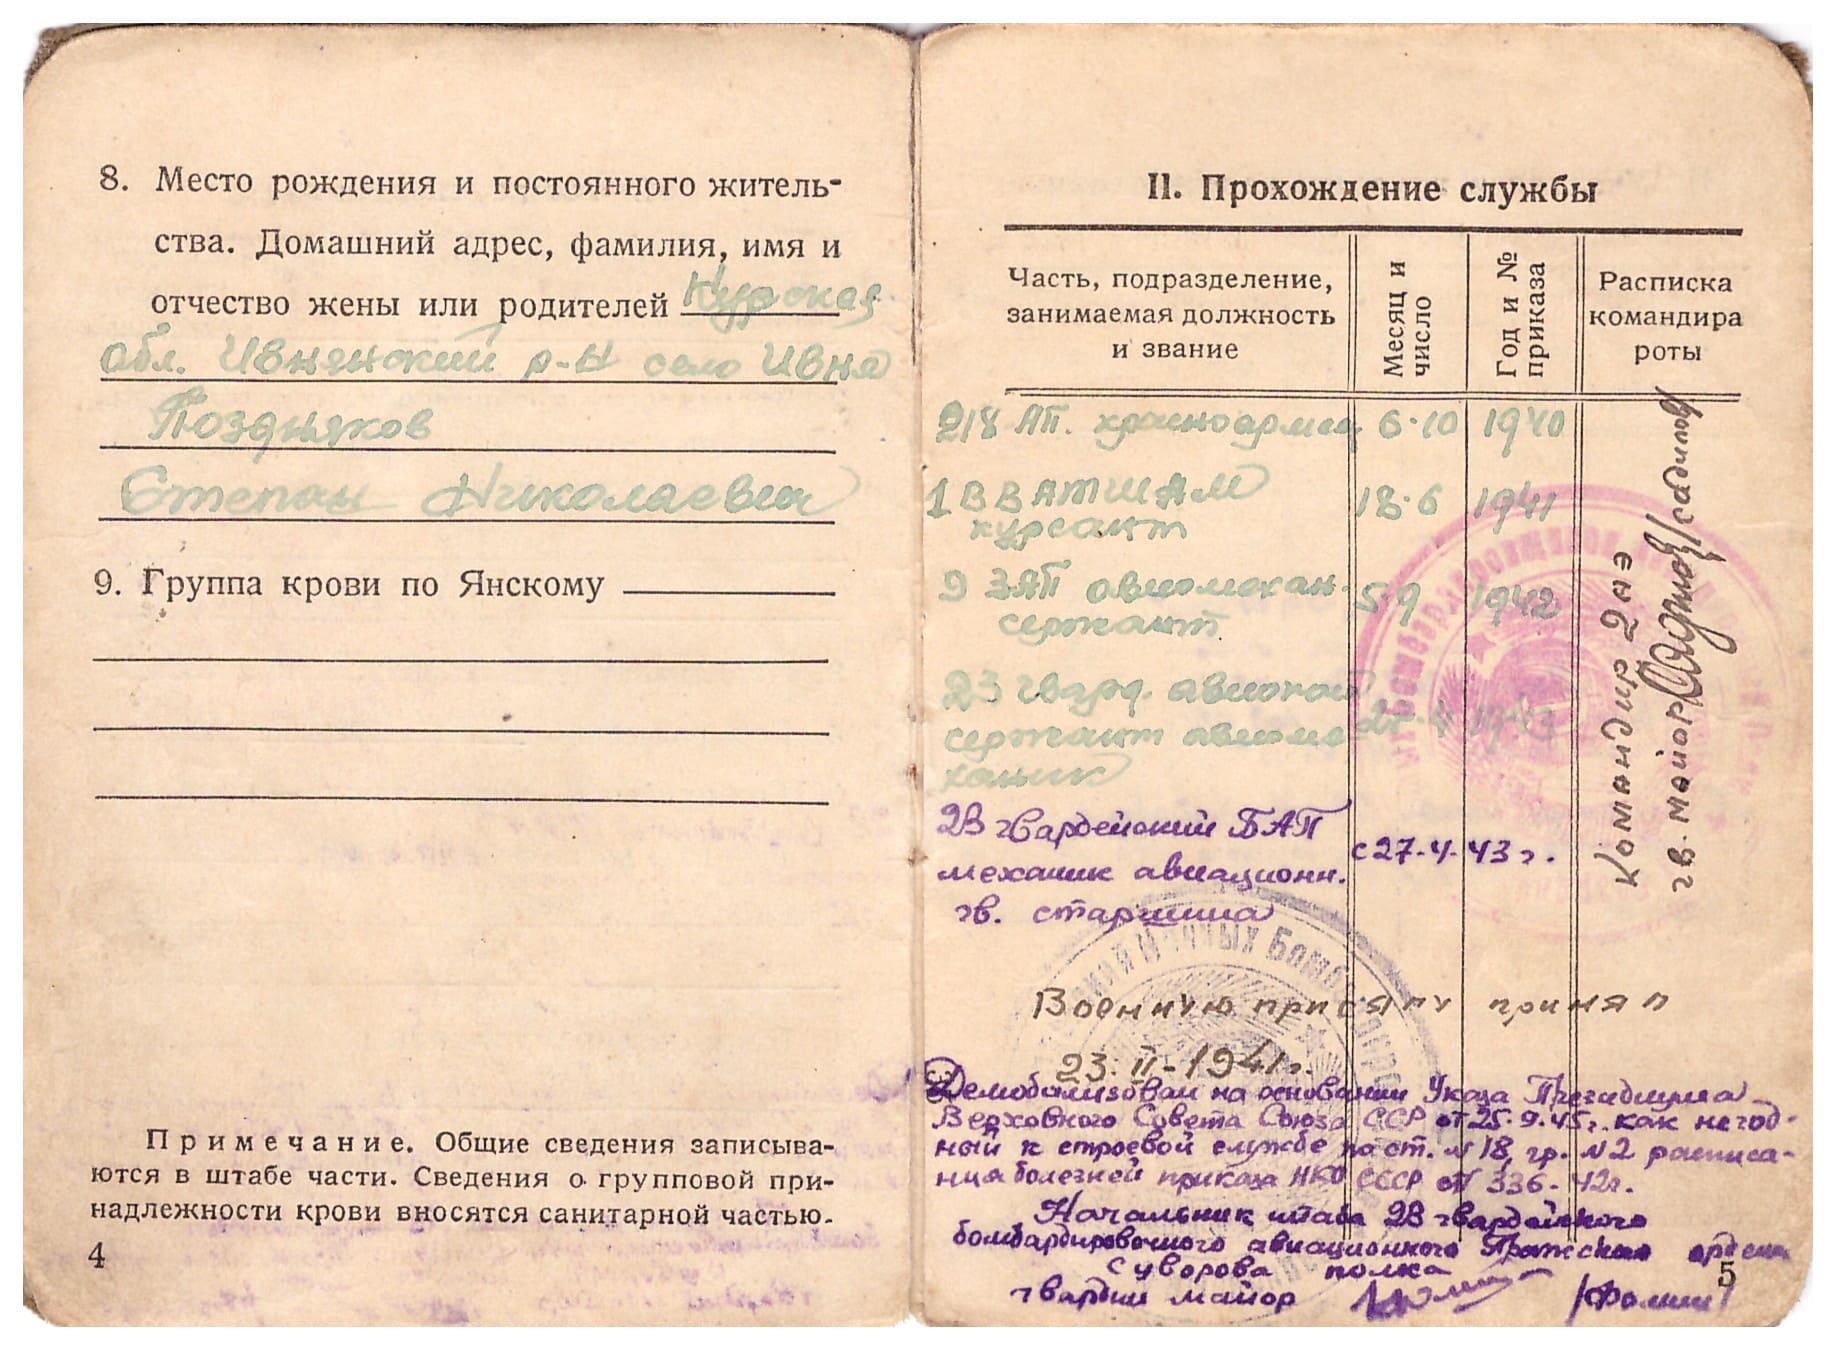 8. Место рождения и постоянного житель-
ства. Домашний адрес, фамилия, имя и
отчество жены или родителей Курская
обл. Ивнянский р-н село Ивня
Поздняков
Степан Николаевич
9. Группа крови по Янскому
Примечание. Общие сведения записыва-
ются в штабе части. Сведения о групповой при-
надлежности крови вносятся санитарной частью.
4
II. Прохождение службы
Часть, подразделение,
занимаемая должность
и звание
Месяц и
число
Год и №
приказа
Расписка
командира
роты
218 АП. красноармеец 6·10 1940
1 ВВАТШАМ 18·6 1941
курсант
9 ЗАП авиомехан. 5·9 1942
сержант
23 гвард. авиополк
сержант авиоме 27·4 1943
ханик
2В гвардейский БАП
механик авиационн. с 27-4-43 г.
гв. старшина
Командир 2 аэ
гв. майор /Садилов/
Военную присягу принял
23·II-1941г.
Демобилизован на основании Указа Президиума
Верховного Совета Союза ССР от 25.9.45г. как негод-
ный к строевой службе по ст. N 18, гр. N 2 расписа-
ния болезней приказа НКО СССР 336-42г.
Начальник штаба 2В гвардейского
бомбардировочного авиационного Пражского ордена
Суворова полка
гвардии майор /Фомин/
5